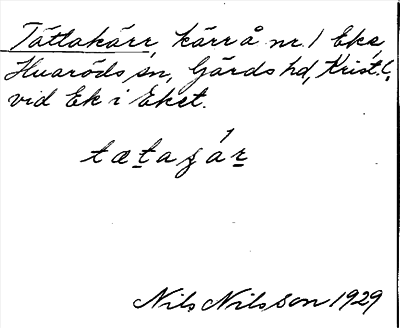 Tåtlakärr, kärr å nr. 1 Eke,
Huaröds sn, Gärds hd, Krist. l.
vid Ek i Eket.
Nils Nilsson 1929